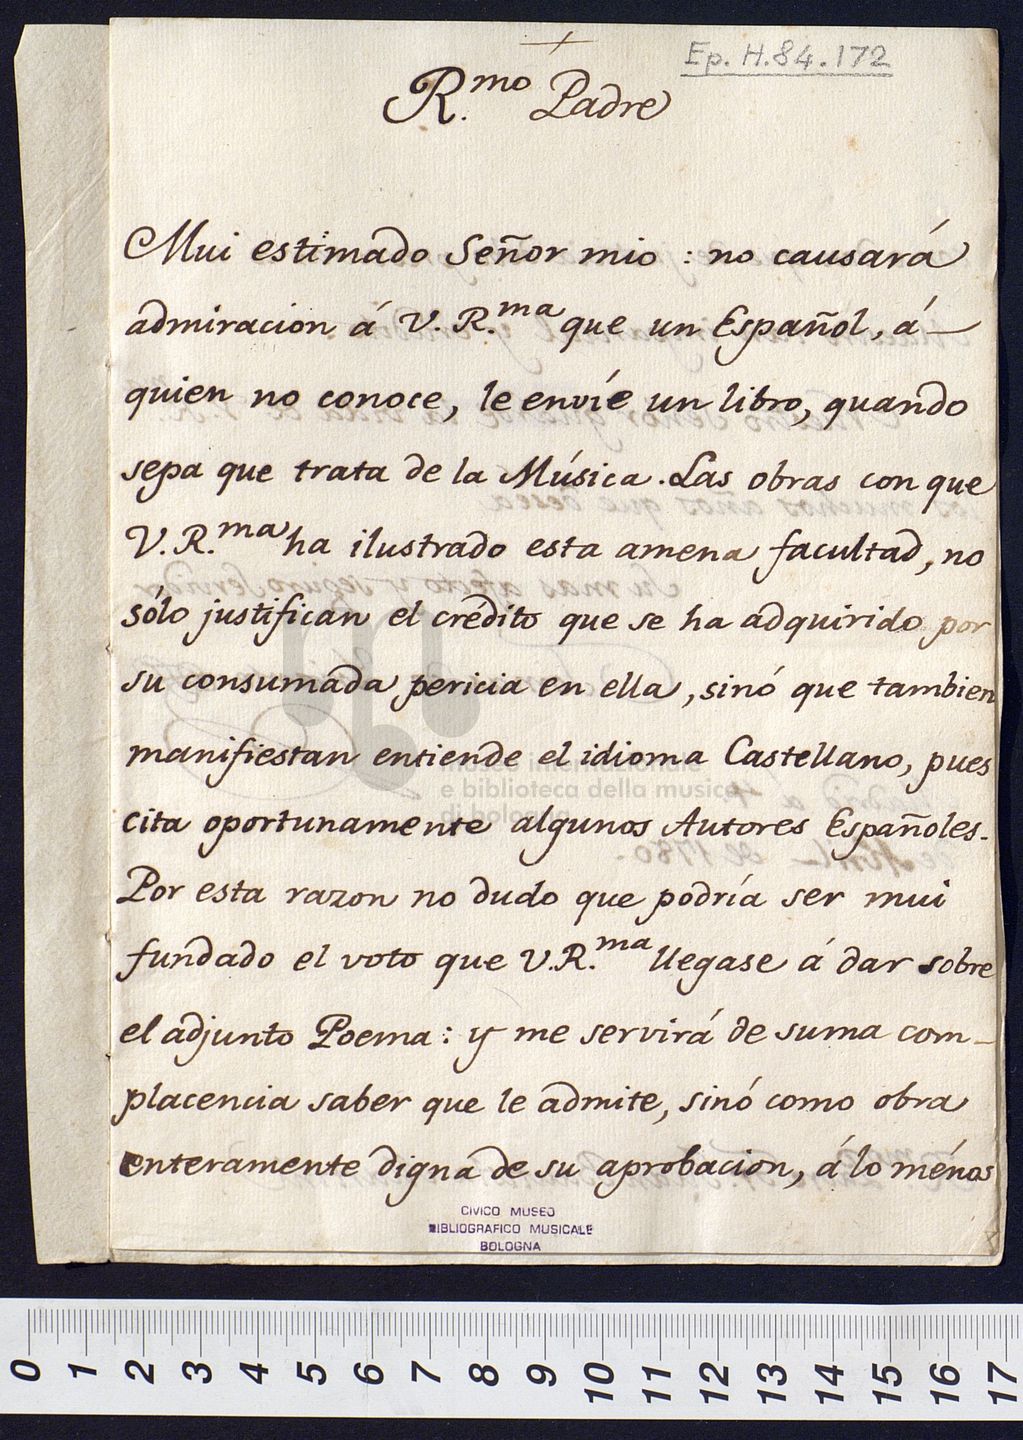 Ep. H.84.172
R.mo Padre
Mui estimado Señor mio : no causará
admiracion á V. R.ma que un Español, á
quien no conoce, le envíe un libro, quando
sepa que trata de la Música. Las obras con que
V. R.ma ha ilustrado esta amena facultad, no
sólo justifican el crédito que se ha adquirido por
su consumada pericia en ella, sinó que tambien
manifiestan entiende el idioma Castellano, pues
cita oportunamente algunos Autores Españoles.
Por esta razon no dudo que podría ser mui
fundado el voto que V.R.ma llegase á dar sobre
el adjunto Poema : y me servirá de suma com-
placencia saber que le admite, sinó como obra
enteramente digna de su aprobacion, á lo ménos
museo internazionale
e biblioteca della musica
di bologna
CIVICO MUSEO
BIBLIOGRAFICO MUSICALE
BOLOGNA
0 1 2 3 4 5 6 7 8 9 10 11 12 13 14 15 16 17